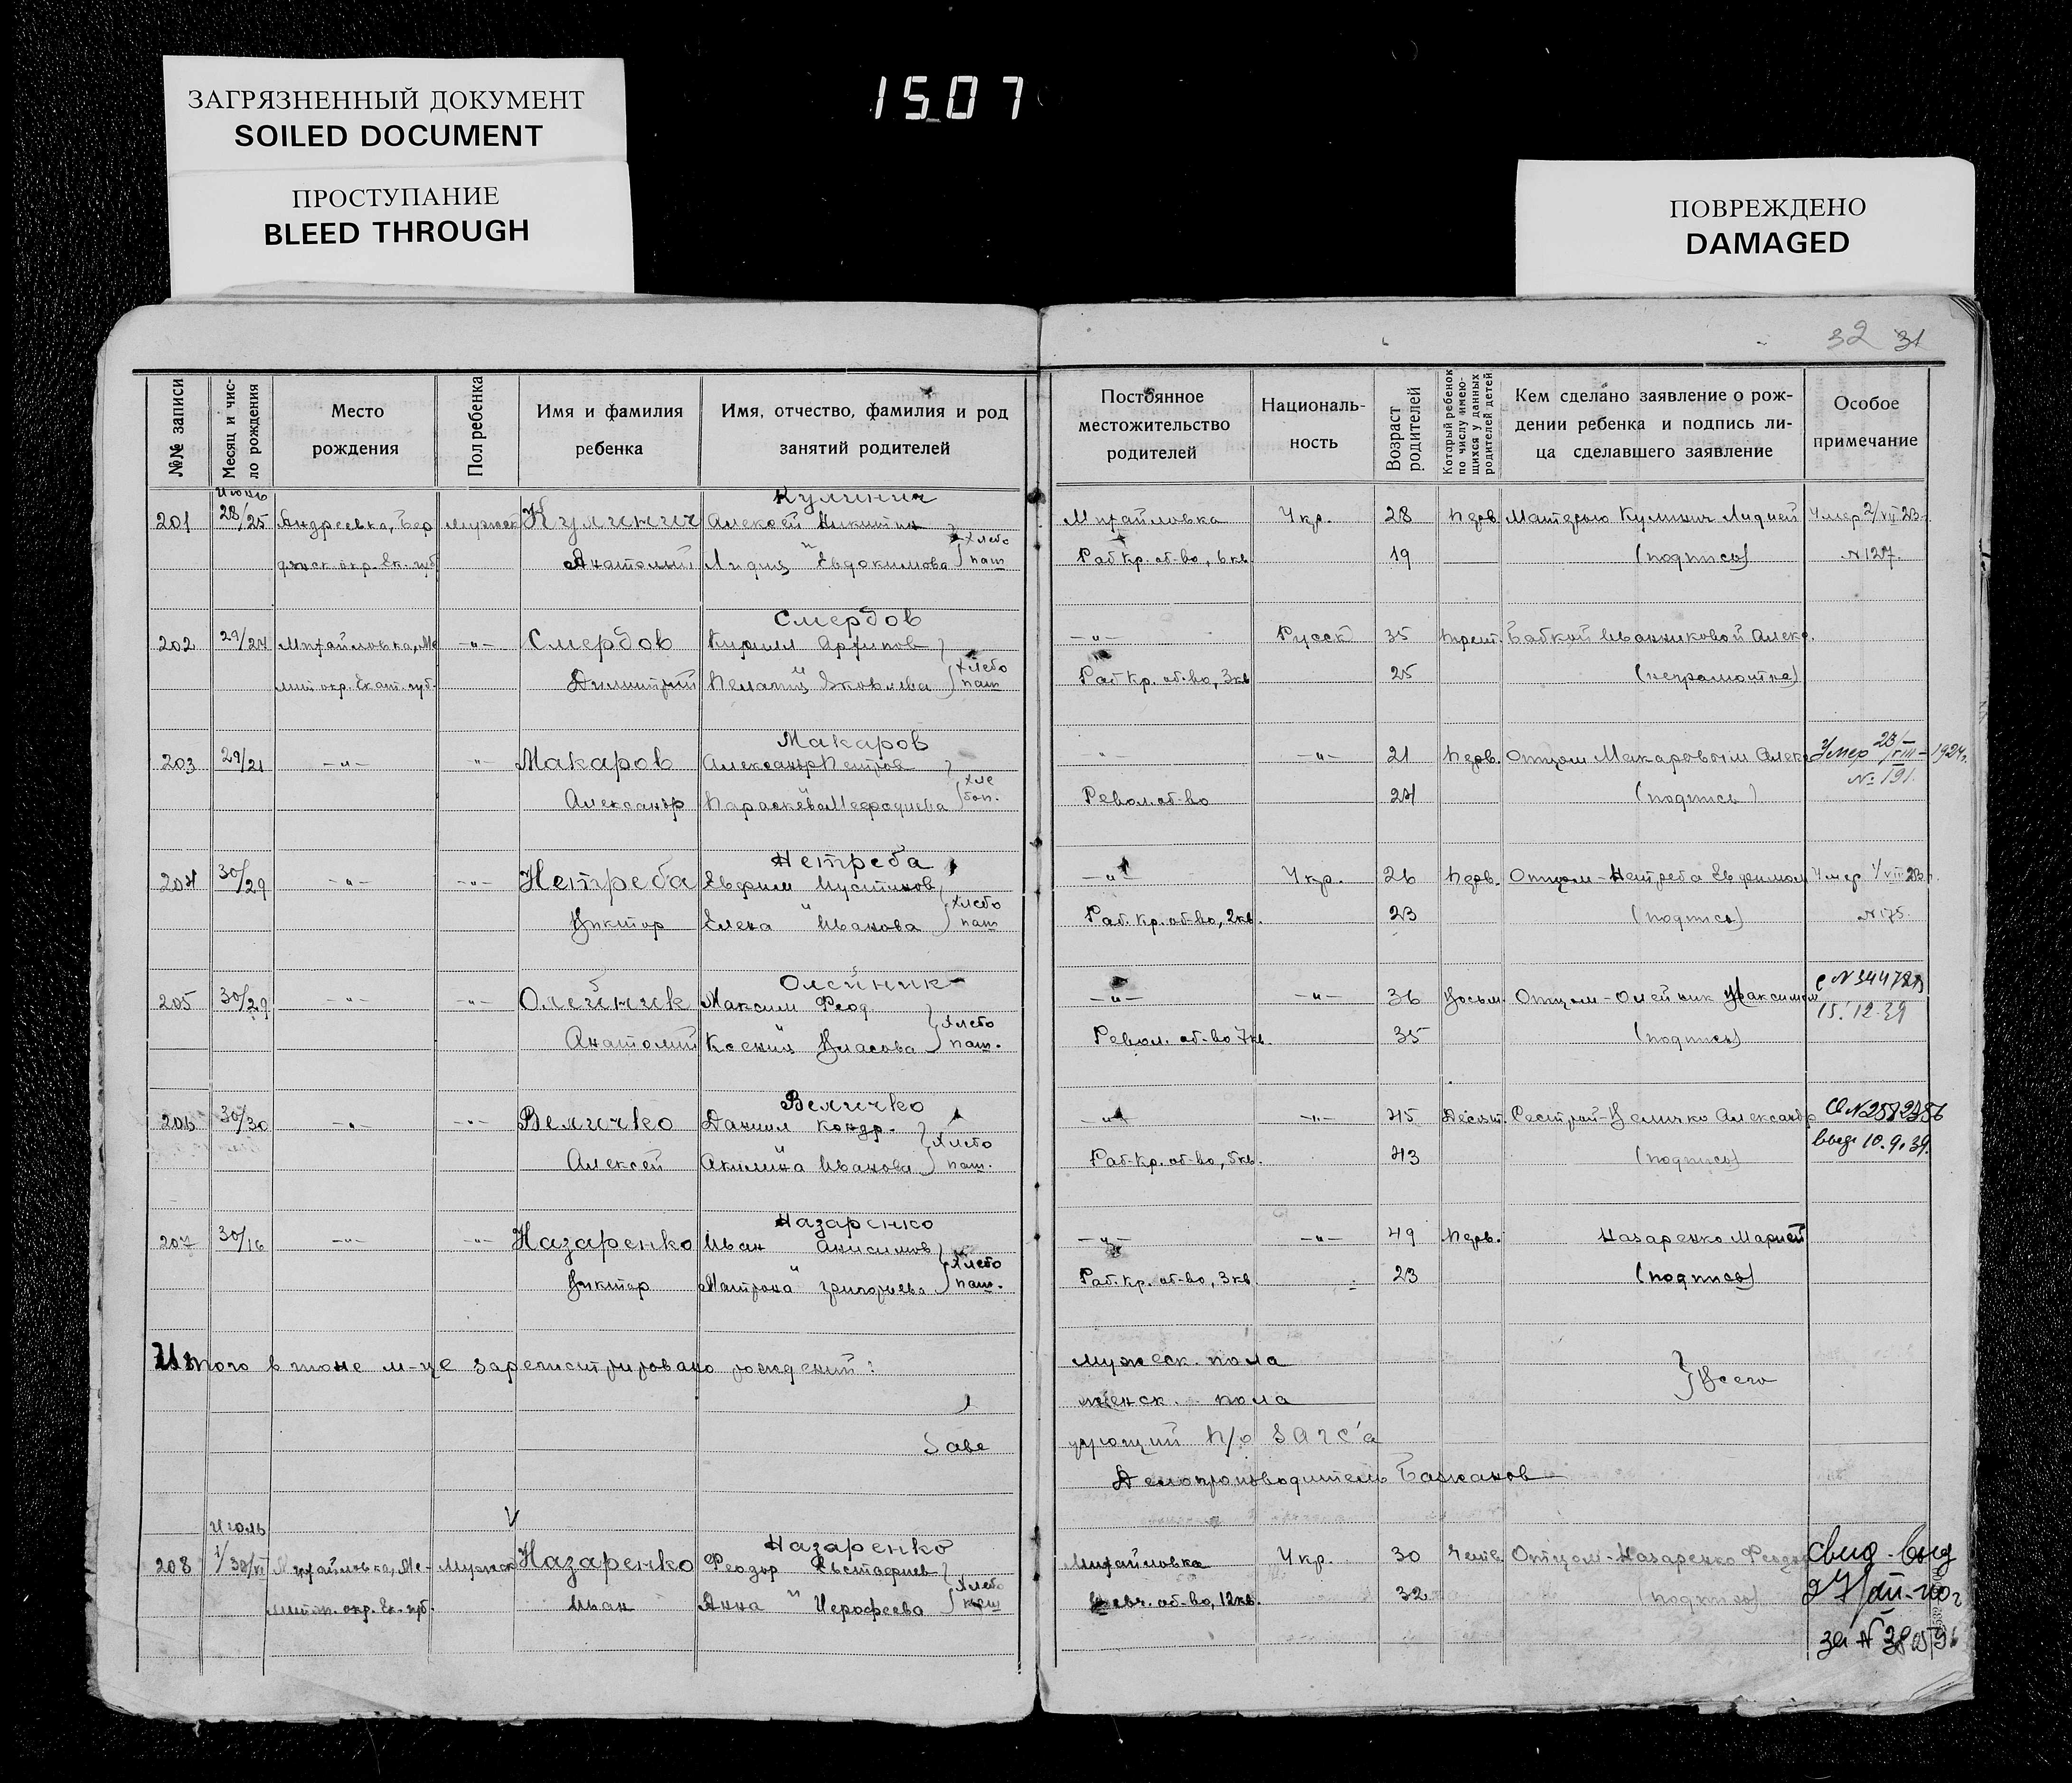 ЗАГРЯЗНЕННЫЙ ДОКУМЕНТ
SOILED DOCUMENT
ПРОСТУПАНИЕ
BLEED THROUGH
1507
ПОВРЕЖДЕНО
DAMAGED
32 31
№№ записи
Месяц и чис-
ло рождения
Место
рождения
Пол ребенка
Имя и фамилия
ребенка
Имя, отчество, фамилия и род
занятий родителей
Постоянное
местожительство
родителей
Националь-
ность
Возраст
родителей
Который ребенок
по числу имею-
щихся у данных
родителей детей
Кем сделано заявление о рож-
дении ребенка и подпись ли-
ца сделавшего заявление
Особое
примечание
Июнь Кулинич
201 28/25 Андреевка, Бер мужск Кулинич Алексей Никитин Михайловка Укр. 28 Перв. Матерью Кулинич Лидией Умер 2/VII 23
дянск. окр. Ек. губ Анатолий Лидия " Евдокимова } Хлебо паш Раб Кр. об-во, 6 кв. 19 (подпись) N 127.
Смердов
202 29/27 Михайловка, Ме -"- Смердов Кирилл Архипов -"- Русск 35 Трет. Бабкой Иванниковой Алекс.
лит окр. Екат. губ. Димитрий Пелагия " Яковлева } Хлебо паш Раб Кр. об-во, 3 кв 25 (неграмотна)
Макаров
203 29/21 -"- -"- Макаров Александр Петров -"- -"- 21 Перв. Отцом Макаровым Алекс Умер 23/VIII - 1924 г.
Александр Параскева " Мефодиева } Хле боп. Револ. об-во 24 (подпись) № 191.
Нетреба
204 30/29 -"- -"- Нетреба Евфим Иустинов -"- Укр. 26 Перв. Отцом - Нетреба Евфимом Умер 1/VIII 23 г.
Виктор Елена " Иванова } Хлебо паш Раб. Кр. об-во, 2 кв. 23 (подпись) N 175.
Олейник
205 30/29 -"- -"- Олейник Максим Феод. -"- -"- 36 Восьм. Отцом - Олейник Максимом
Анатолий Ксения " Власова } Хлебо паш. Револ. об-во 7 кв 35 (подпись) 15.12.39
Величко
206 30/30 -"- -"- Величко Даниил Кондр. -"- -"- 45 Десят. Сестрой - Величко Александр
Алексей Акилина " Иванова } Хлебо паш. Раб. Кр. об-во, 5 кв. 43 (подпись) выд. 10.9.39.
Назаренко
207 30/16 -"- -"- Назаренко Иван Анисимов -"- -"- 49 Перв. Назаренко Марией
Виктор Матрона " Григорьева } Хлебо паш. Раб. Кр. об-во, 3 кв. 23 (подпись)
Итого в июне м-це зарегистрировано рождений: мужеск. пола
женск. пола } Всего
Заве дующий п/о ЗАГС'а
Делопроизводитель Башканов
Июль V Назаренко
208 1/30/VI Михайловка, Ме- Мужск Назаренко Феодор Евстафиев Михайловка Укр. 30 Четв. Отцом - Назаренко Феодор Свид. выд
литоп. окр. Ек. губ. Иван Анна " Иерофеева } Хлебо паш Шевч. об-во, 12 кв. 32 (подпись)
за N